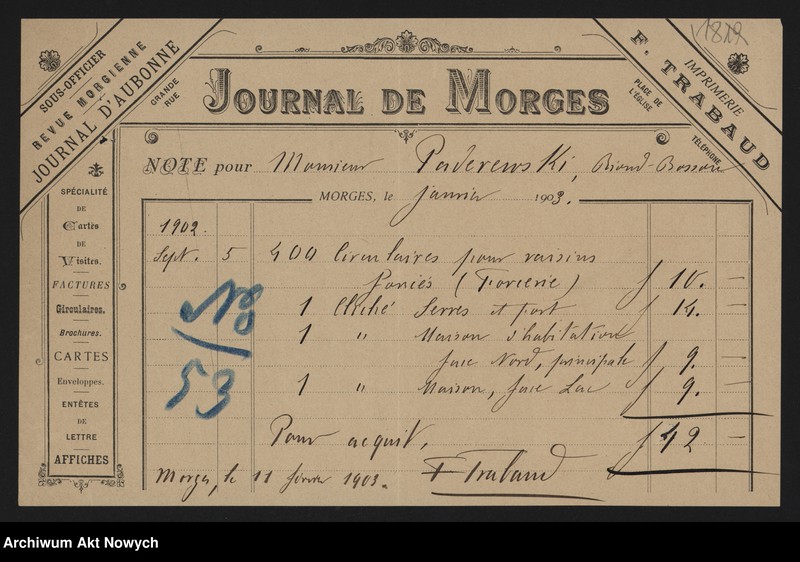 1812
SOUS-OFFICIER
REVUE MORGIENNE
JOURNAL D'AUBONNE
GRANDE
RUE
JOURNAL DE MORGES
F. TRABAUD
IMPRIMERIE
PLACE DE
L'ÉGLISE
TÉLÉPHONE
NOTE pour Monsieur Paderewski, Riond-Bosson
MORGES, le janvier 1903.
SPÉCIALITÉ
DE
Cartes
DE
Visites.
FACTURES
Circulaires.
Brochures.
CARTES
Enveloppes.
ENTÊTES
DE
LETTRE
AFFICHES
1902.
Sept. 5 400 Circulaires pour raisins
(Forcerie) f 10. —
1 Cliché Serres et port f 14. —
1 " Maison d'habitation
face Nord, principale f 9. —
1 " Maison, face Lac f 9. —
f 42 —
No
53
Pour acquit,
Morges, le 11 février 1903. F Trabaud
Archiwum Akt Nowych